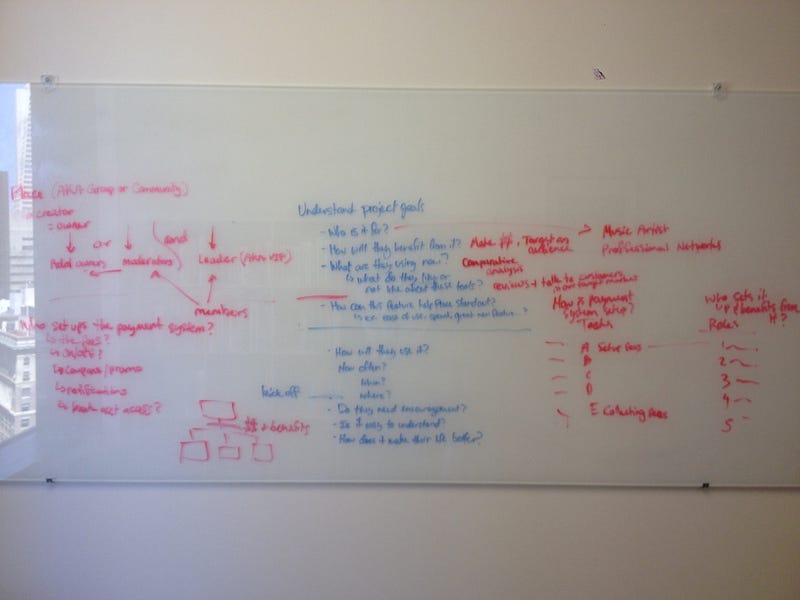 Place (AKA Group or Community)
creator
= owner
or
and
Add owners
moderators
Leader (AKA VIP)
members
Who sets up the payment system?
↳ the fees?
↳ on/off?
↳ coupons/promo
↳ notifications
asset access?
$$ + benefits
Understand project goals
- Who is it for?
Music Artist
Professional Networks
- How will they benefit from it?
Make $$, Target an audience
- What are they using now?
Comparative analysis
↳ what do they like or
not like about these tools?
reviews + talk to customers
- How can this feature help Place stand out?
↳ ex. ease of use, speed, great new feature...?
kick off
- How will they use it?
How often?
When?
Where?
- Do they need encouragement?
- Is it easy to understand?
- How does it make their life better?
How is payment
system setup?
Tasks
A Setup fees
B
C
D
E Collecting fees
Who sets it
up & benefits from
it?
Roles
1
2
3
4
5